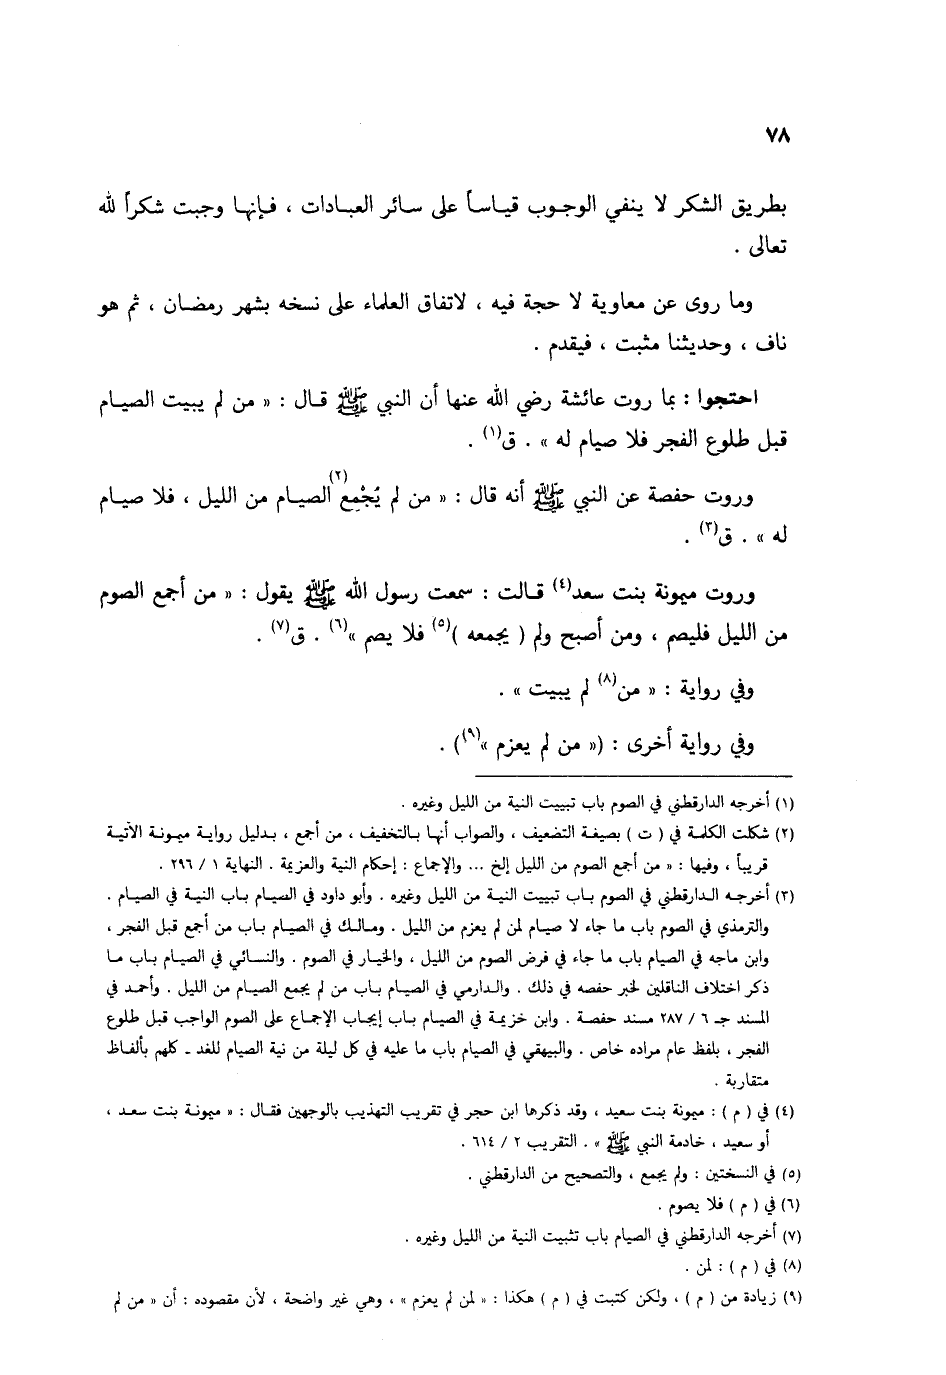 ٧٨
بطريق الشكر لا ينفي الوجوب قياساً على سائر العبادات ، فإنها وجبت شكراً لله
تعالى .
وما روى عن معاوية لا حجة فيه ، لاتفاق العلماء على نسخه بشهر رمضان ، ثم هو
ناف ، وحديثنا مثبت ، فيقدم .
احتجوا : بما روت عائشة رضي الله عنها أن النبي ﷺ قال : « من لم يبيت الصيام
قبل طلوع الفجر فلا صيام له » . ق(١) .
وروت حفصة عن النبي ﷺ أنه قال : « من لم يُجْمِع(٢) الصيام من الليل ، فلا صيام
له » . ق(٣) .
وروت ميمونة بنت سعد(٤) قالت : سمعت رسول الله ﷺ يقول : « من أجمع الصوم
من الليل فليصم ، ومن أصبح ولم ( يجمعه )(٥) فلا يصم »(٦) . ق(٧) .
وفي رواية : « من(٨) لم يبيت » .
وفي رواية أخرى : (« من لم يعزم »(٩)) .
(١) أخرجه الدارقطني في الصوم باب تبييت النية من الليل وغيره .
(٢) شكلت الكلمة في ( ت ) بصيغة التضعيف ، والصواب أنها بالتخفيف ، من أجمع ، بدليل رواية ميمونة الآتية
قريباً ، وفيها : « من أجمع الصوم من الليل إلخ ... والإجماع : إحكام النية والعزيمة . النهاية ١ / ٢٩٦ .
(٣) أخرجه الدارقطني في الصوم باب تبييت النية من الليل وغيره . وأبو داود في الصيام باب النية في الصيام .
والترمذي في الصوم باب ما جاء لا صيام لمن لم يعزم من الليل . ومالك في الصيام باب من أجمع قبل الفجر ،
وابن ماجه في الصيام باب ما جاء في فرض الصوم من الليل ، والخيار في الصوم . والنسائي في الصيام باب ما
ذكر اختلاف الناقلين لخبر حفصه في ذلك . والدارمي في الصيام باب من لم يجمع الصيام من الليل . وأحمد في
المسند جـ ٦ / ٢٨٧ مسند حفصة . وابن خزيمة في الصيام باب إيجاب الإجماع على الصوم الواجب قبل طلوع
الفجر ، بلفظ عام مراده خاص . والبيهقي في الصيام باب ما عليه في كل ليلة من نية الصيام للغد ـ كلهم بألفاظ
متقاربة .
(٤) في ( م ) : ميمونة بنت سعيد ، وقد ذكرها ابن حجر في تقريب التهذيب بالوجهين فقال : « ميمونة بنت سعد ،
أو سعيد ، خادمة النبي ﷺ » . التقريب ٢ / ٦١٤ .
(٥) في النسختين : ولم يجمع ، والتصحيح من الدارقطني .
(٦) في ( م ) فلا يصوم .
(٧) أخرجه الدارقطني في الصيام باب تثبيت النية من الليل وغيره .
(٨) في ( م ) : لمن .
(٩) زيادة من ( م ) ، ولكن كتبت في ( م ) هكذا : « لمن لم يعزم » ، وهي غير واضحة ، لأن مقصوده : أن « من لم